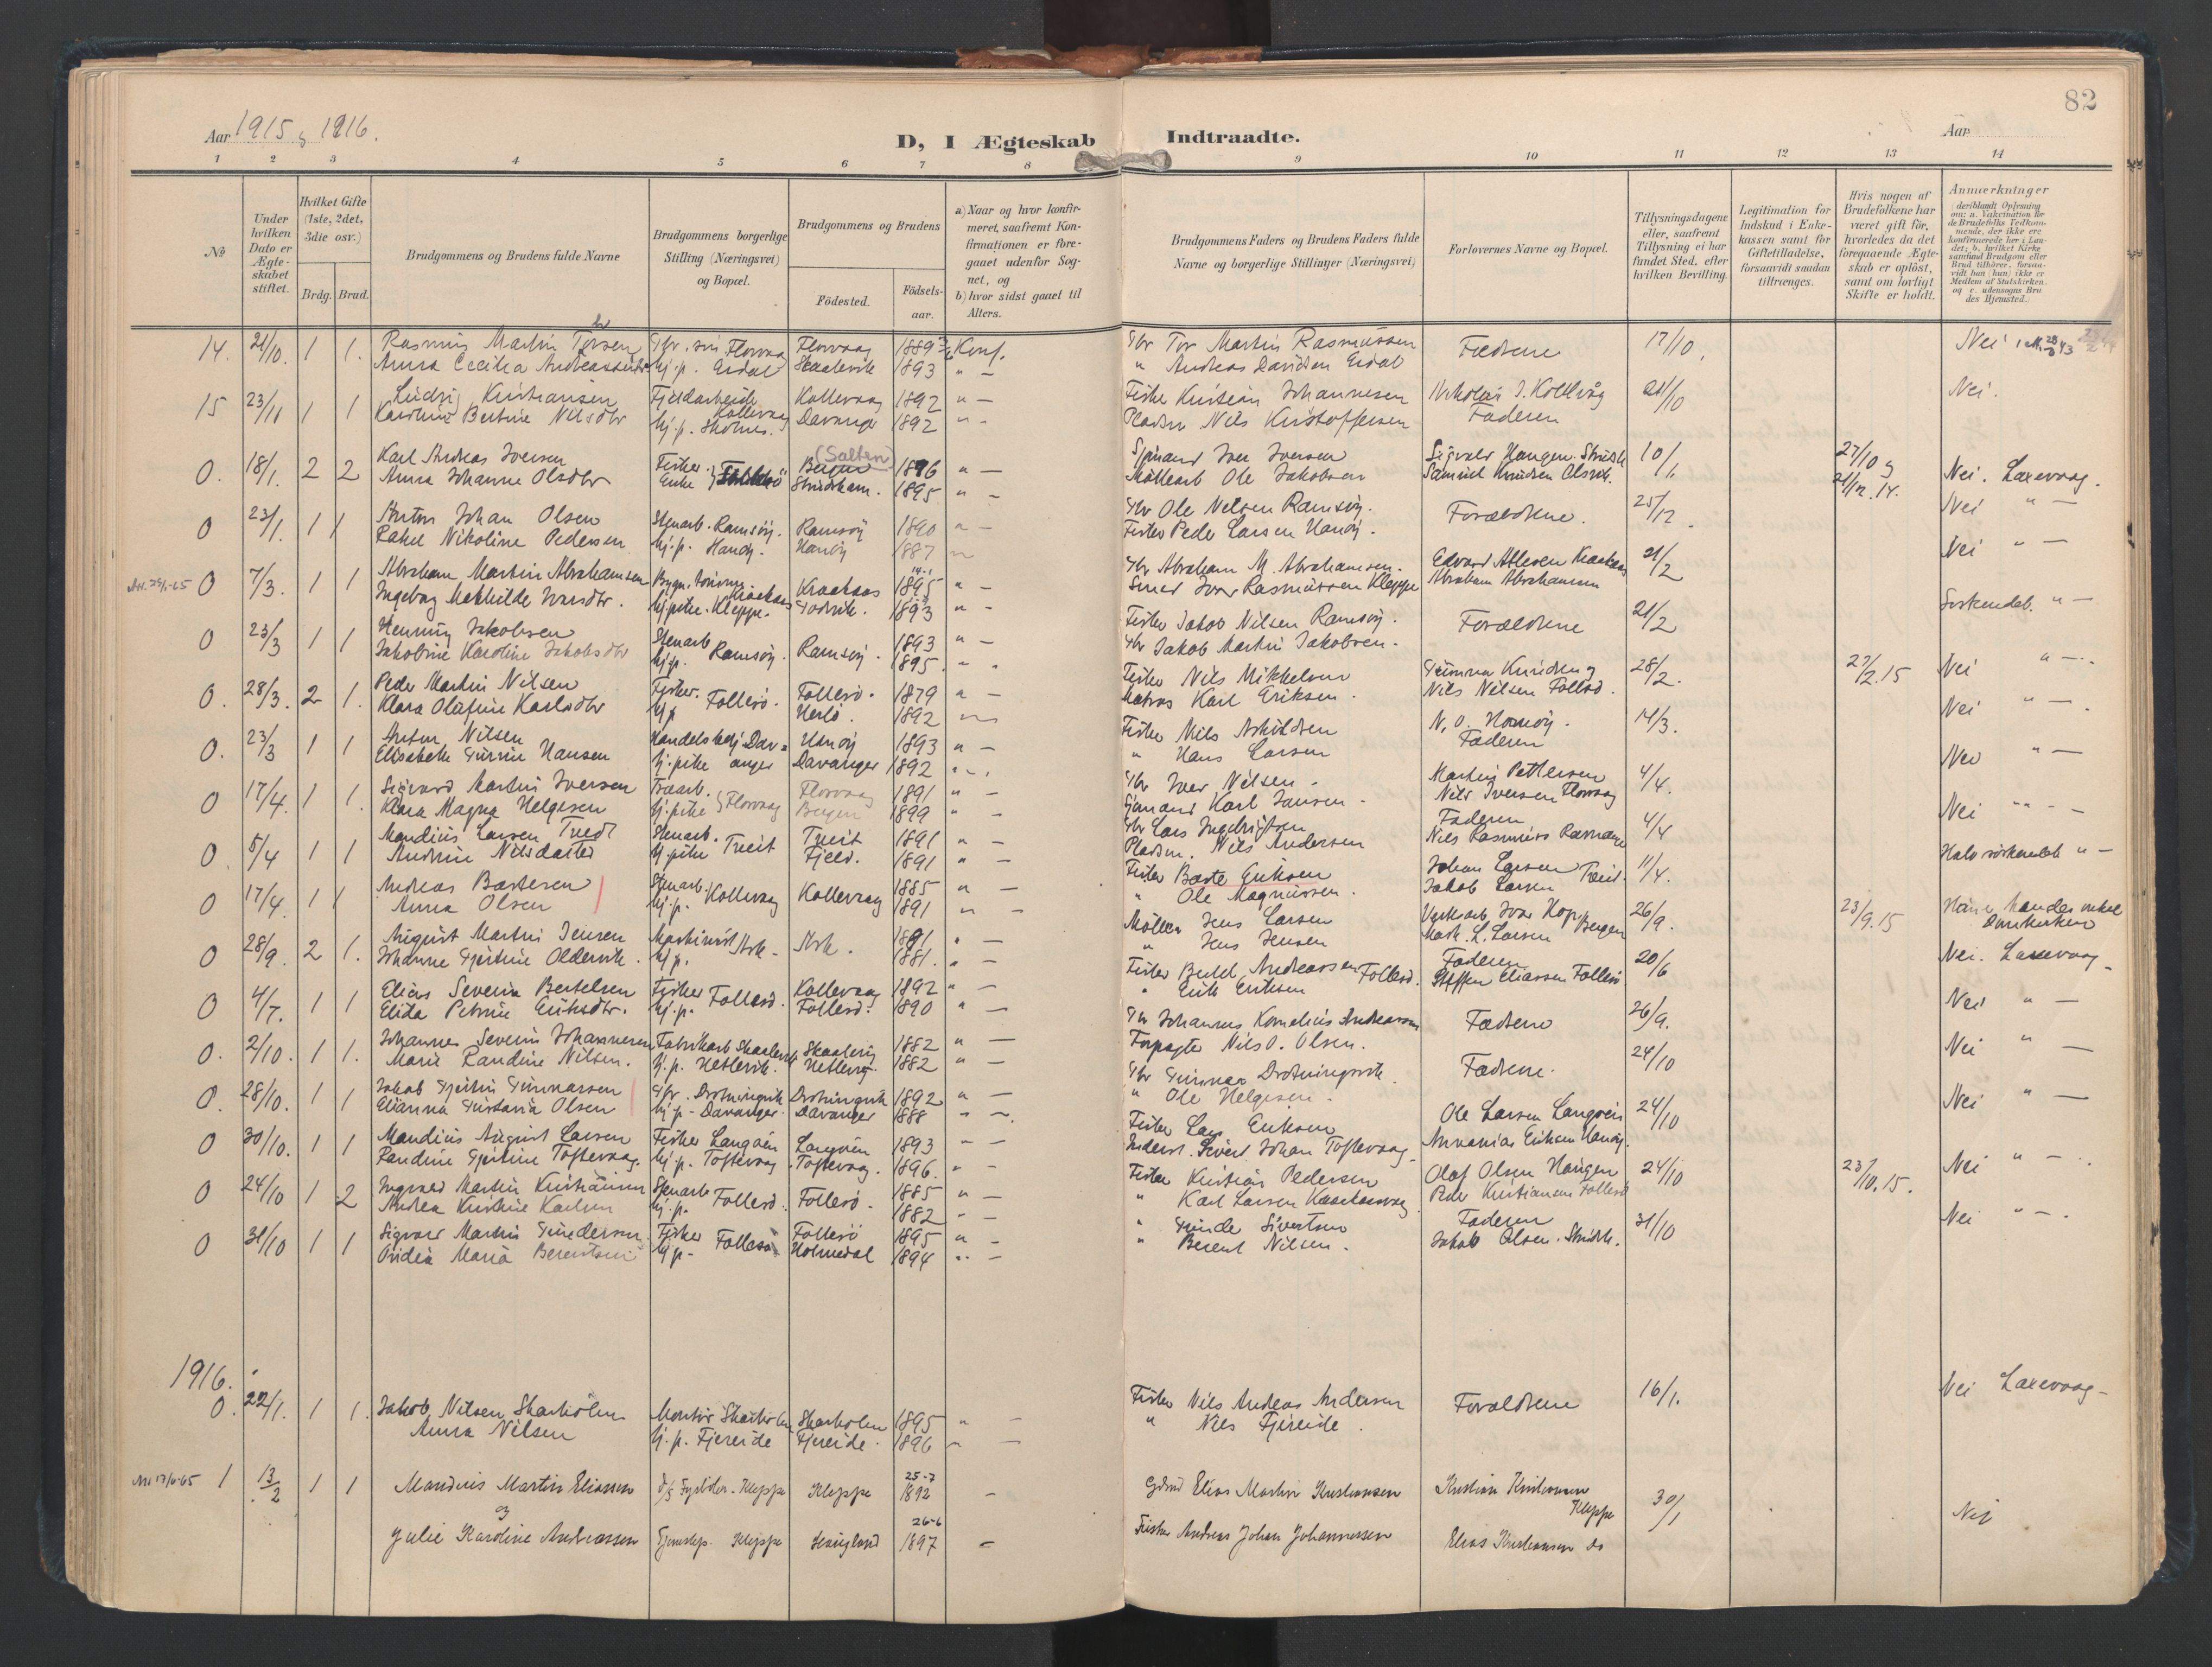 82
Aar 1915 & 1916.
D, I Ægteskab Indtraadte.
Aar
1 2 3 4 5 6 7 8 9 10 11 12 13 14
No
Under hvilken Dato er Ægteskabet stiftet.
Hvilket Gifte (1ste, 2det, 3die osv.)
Brdg. Brud.
Brudgommens og Brudens fulde Navne
Brudgommens borgerlige Stilling (Næringsvei) og Bopæl.
Brudgommens og Brudens
Födested. Födselsaar.
a) Naar og hvor konfirmeret, saafremt Konfirmationen er foregaaet udenfor Sognet, og
b) hvor sidst gaaet til Alters.
Brudgommens Faders og Brudens Faders fulde Navne og borgerlige Stillinger (Næringsvei)
Forlovernes Navne og Bopæl.
Tillysningsdagene eller, saafremt Tillysning ei har fundet Sted, efter hvilken Bevilling.
Legitimation for Indskud i Enkekassen samt for Giftetilladelse, forsaavidt saadan tiltrænges.
Hvis nogen af Brudefolkene har været gift før, hvorledes da det foregaaende Ægteskab er oplöst, samt om lovligt Skifte er holdt.
Anmærkninger (deriblandt Oplysning om: a. Vakcination for de Brudefolks Vedkommende, der ikke ere konfirmerede her i Landet; b. hvilket Kirkesamfund Brudgom eller Brud tilhörer, forsaavidt han (hun) ikke er Medlem af Statskirken, og c. udensogns Brudes Hjemsted.)
14. 24/10. 1 1. Rasmus Martin Torsen Gbr. sön Florvaag Florvaag 1889 Konf. Gbr Tor Martin Rasmussen Fædrene 17/10. Nei
Anna Cecilia Andreasdatter hj.p. Erdal Skaalevik 1893 " - " Andreas Davidsen Erdal
15 23/11 1 1 Ludvig Kristiansen Fjeldarbeide Kollevaag Kollevaag 1892 " - Fisker Kristian Johannesen Nikolai J. Kollvåg 21/10 Nei.
Karoline Bertine Nilsdtr hj.p. Davanger 1892 " - Pladsm Nils Kristoffersen Faderen
0. 18/1. 2 2 Karl Andreas Iversen Fisker (Salten) Bergen 1896 " - Sjömand Iver Iversen Sigvald Haugen 10/1 27/10 &
Anna Johanne Olsdtr Enke 1895 " - Ole Jakobsen Samuel Knudsen 21/12.14. Nei. Laxevaag.
0 23/1. 1 1 Anton Johan Olsen Stenarb. Ramsöy. Ramsöy 1890 " - Gbr Ole Nelsen Ramsöy. Forældrene. 25/12. Nei " -
Rakel Nikoline Pedersen hj.p. Hanöy. Hanöy 1887 " Fisker Peder Larsen Hanöy.
0 7/3. 1 1 Abraham Martin Abrahamsen Kraakaas 1895 " - Gbr Abraham M. Abrahamsen. Edvard 21/2 Nei " -
Ingeborg Mathilde Ivarsdtr. hj.pike. Kleppe. 1893 " - Smed Ivar Rasmussen Kleppe Abraham Abrahamsen
0 23/3 1 1 Henning Jakobsen Stenarb Ramsöy. Ramsöy. 1893 " - Fisker Jakob Nilsen Ramsöy. Forældrene 21/2 Söskendeb. " -
Jakobine Karoline Jakobsdtr hj.p. 1895. " . Gbr Jakob Martin Jakobsen.
0. 28/3. 2 1. Peder Martin Nilsen Fisker. Follesö. Follesö. 1879 " - Fisker Nils Mikkelsen Knudsen & 28/2. 27/2.15 Nei " -.
Klara Olufine Karlsdtr hj.p Herlö. 1892 Matros Karl Eriksen. Nils Nilsen Follesö.
0. 23/3 1 1 Anton Nilsen Handelsbetj. Dav= Hanöy 1893 " - Fisker Nils 14/3. Nei " -.
Elisabeth Hansen hj.pike anger Davanger 1892 " Hans Larsen Faderen
0 17/4. 1 1. Sigvard Martin Iversen Florvaag Florvaag 1891 " - Gbr Iver Nilsen. Martin Pettersen 4/4. Nei " -
Klara Magna Helgesen hj.pike Bergen 1899 " Sjömand Karl Jansen. Nils Iversen Florvaag
0. 5/4 1 1 Mandius Larsen Treit Stenarb. Treit Treit 1891 " - Gbr Lars Faderen 4/4 Nei
Andrine Nilsdatter hj.pike Fjeld. 1891 " - Pladsm. Nils Andersen Nils Rasmus
0 17/4. 1 1 Andreas Bastesen Stenarb. Kollevaag Kollevaag 1885 " - Fisker Baste Eriksen Johan Larsen Treit. 11/4. Halv söskendeb " -
Anna Olsen hj.p. 1891 " - " Ole Magnussen. Jakob Larsen
0 28/9. 2 1. August Martin Jensen Maskinist Ask. Ask. 1881 " - Möller Jens Larsen Ivar Hop Bergen 26/9. 23/9.15
Johanne Oldervik. hj.p. 1881. " - " Jens Jensen Mask. L. Larsen
0 4/7. 1 1 Elias Severin Bertelsen Fisker Follesö. Kollevaag 1892 " - Fisker Follesö. Faderen 20/6 Nei. Laxevaag
Elida Petrine Eriksdtr. hj.p. Follesö. 1890 " - " Erik Eriksen Steffen Eliassen Follesö
0. 2/10. 1 1. Johannes Severin Johannesen Fabrikarb Skaalevik Skaalevig 1882 " - Gbr Johannes Kornelius Andreassen Fædrene 26/9. Nei " -
Marie Randine Nilsen. hj.p. Hetlevik. Hetlevig. 1882 " - Forpagter Nils O. Olsen.
0. 28/10. 1 1 Jakob Gunnarsen Gbr. Drotningsvik Drotningsvik 1892 " - Gbr Gunnar Drotningsvik. Fædrene. 24/10 Nei " -
Elianna Gustava Olsen hj.p - Davanger. Davanger 1888 " - " Ole Helgesen.
0 30/10. 1 1 Mandius August Larsen Fisker Langöen Langöen 1893 " - Fisker Lars Eriksen Ole Larsen Langöen 24/10 Nei " -
Randine Toftevaag. hj.p. Toftevaag Toftevaag. 1896. " - Sivert Johan Toftevaag Ananias Eriksen Hanöy.
0 24/10 1 2 Ingvald Martin Kristiansen Stenarb Follesö. Follesö. 1885 " - Fisker Kristian Pedersen Olaf Olsen Haugen 24/10 23/10.15. Nei " -.
Andrea Kristine Karlsen hj.p. 1882 " - " Karl Larsen Peder Kristiansen Follesö
0 31/10 1 1 Sigvald Martin Gundersen Fisker Follesö Follesö 1895 " - " Gunder Sivertsen Faderen 31/10 Nei " -.
Maria Berentsen hj.p- Holmedal 1894 " - " Berent Nilsen. Jakob Olsen.
1916.
0. 22/1. 1 1. Jakob Nilsen Skarholm Montör Skarholm Skarholm 1895 " - Fisker Nils Andreas Andersen Forældrene 16/1. Nei Laxevaag-
Anna Nilsen hj.p. Fjereide Fjereide. 1896 - " Nils Fjereide.
1 13/2 1 1 Mandius Martin Eliassen Kleppe Kleppe 25-7 1892 - Gdmd Elias Martin Kristiansen Kristian Kristiansen Kleppe 30/1 Nei
og
Julie Karoline Andreassen Kleppe Haugland 26-6 1897 - Fisker Andreas Johan Johannessen Elias Kristiansen do